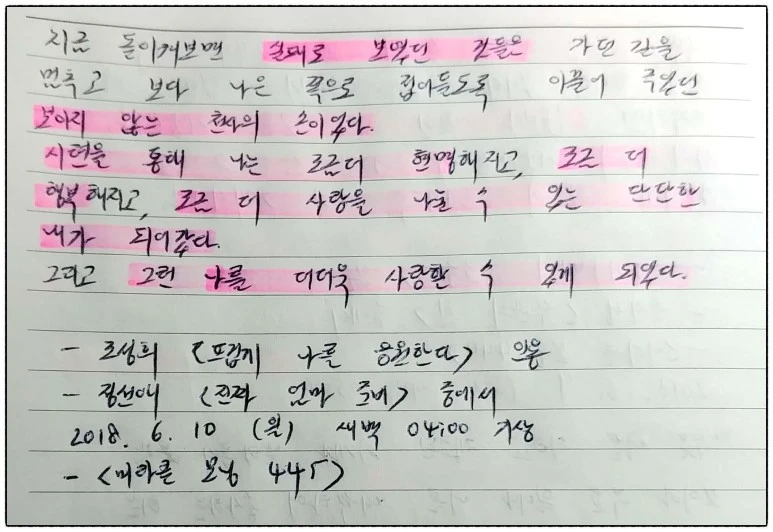 지금 돌이켜보면 실패로 보였던 것들은 가던 길을
멈추고 보다 나은 쪽으로 접어들도록 이끌어 주었던
보이지 않는 하나의 손이었다.
시련을 통해 나는 조금 더 현명해지고, 조금 더
행복해지고, 조금 더 사랑을 나눌 수 있는 단단한
내가 되어갔다.
그리고 그런 나를 더더욱 사랑할 수 있게 되었다.
- 조성희 <뜨겁게 나를 응원한다> 인용
- 정선애 <진짜 엄마 준비> 중에서
2018. 6. 10 (월) 새벽 04:00 기상
- <미라클 모닝 445>